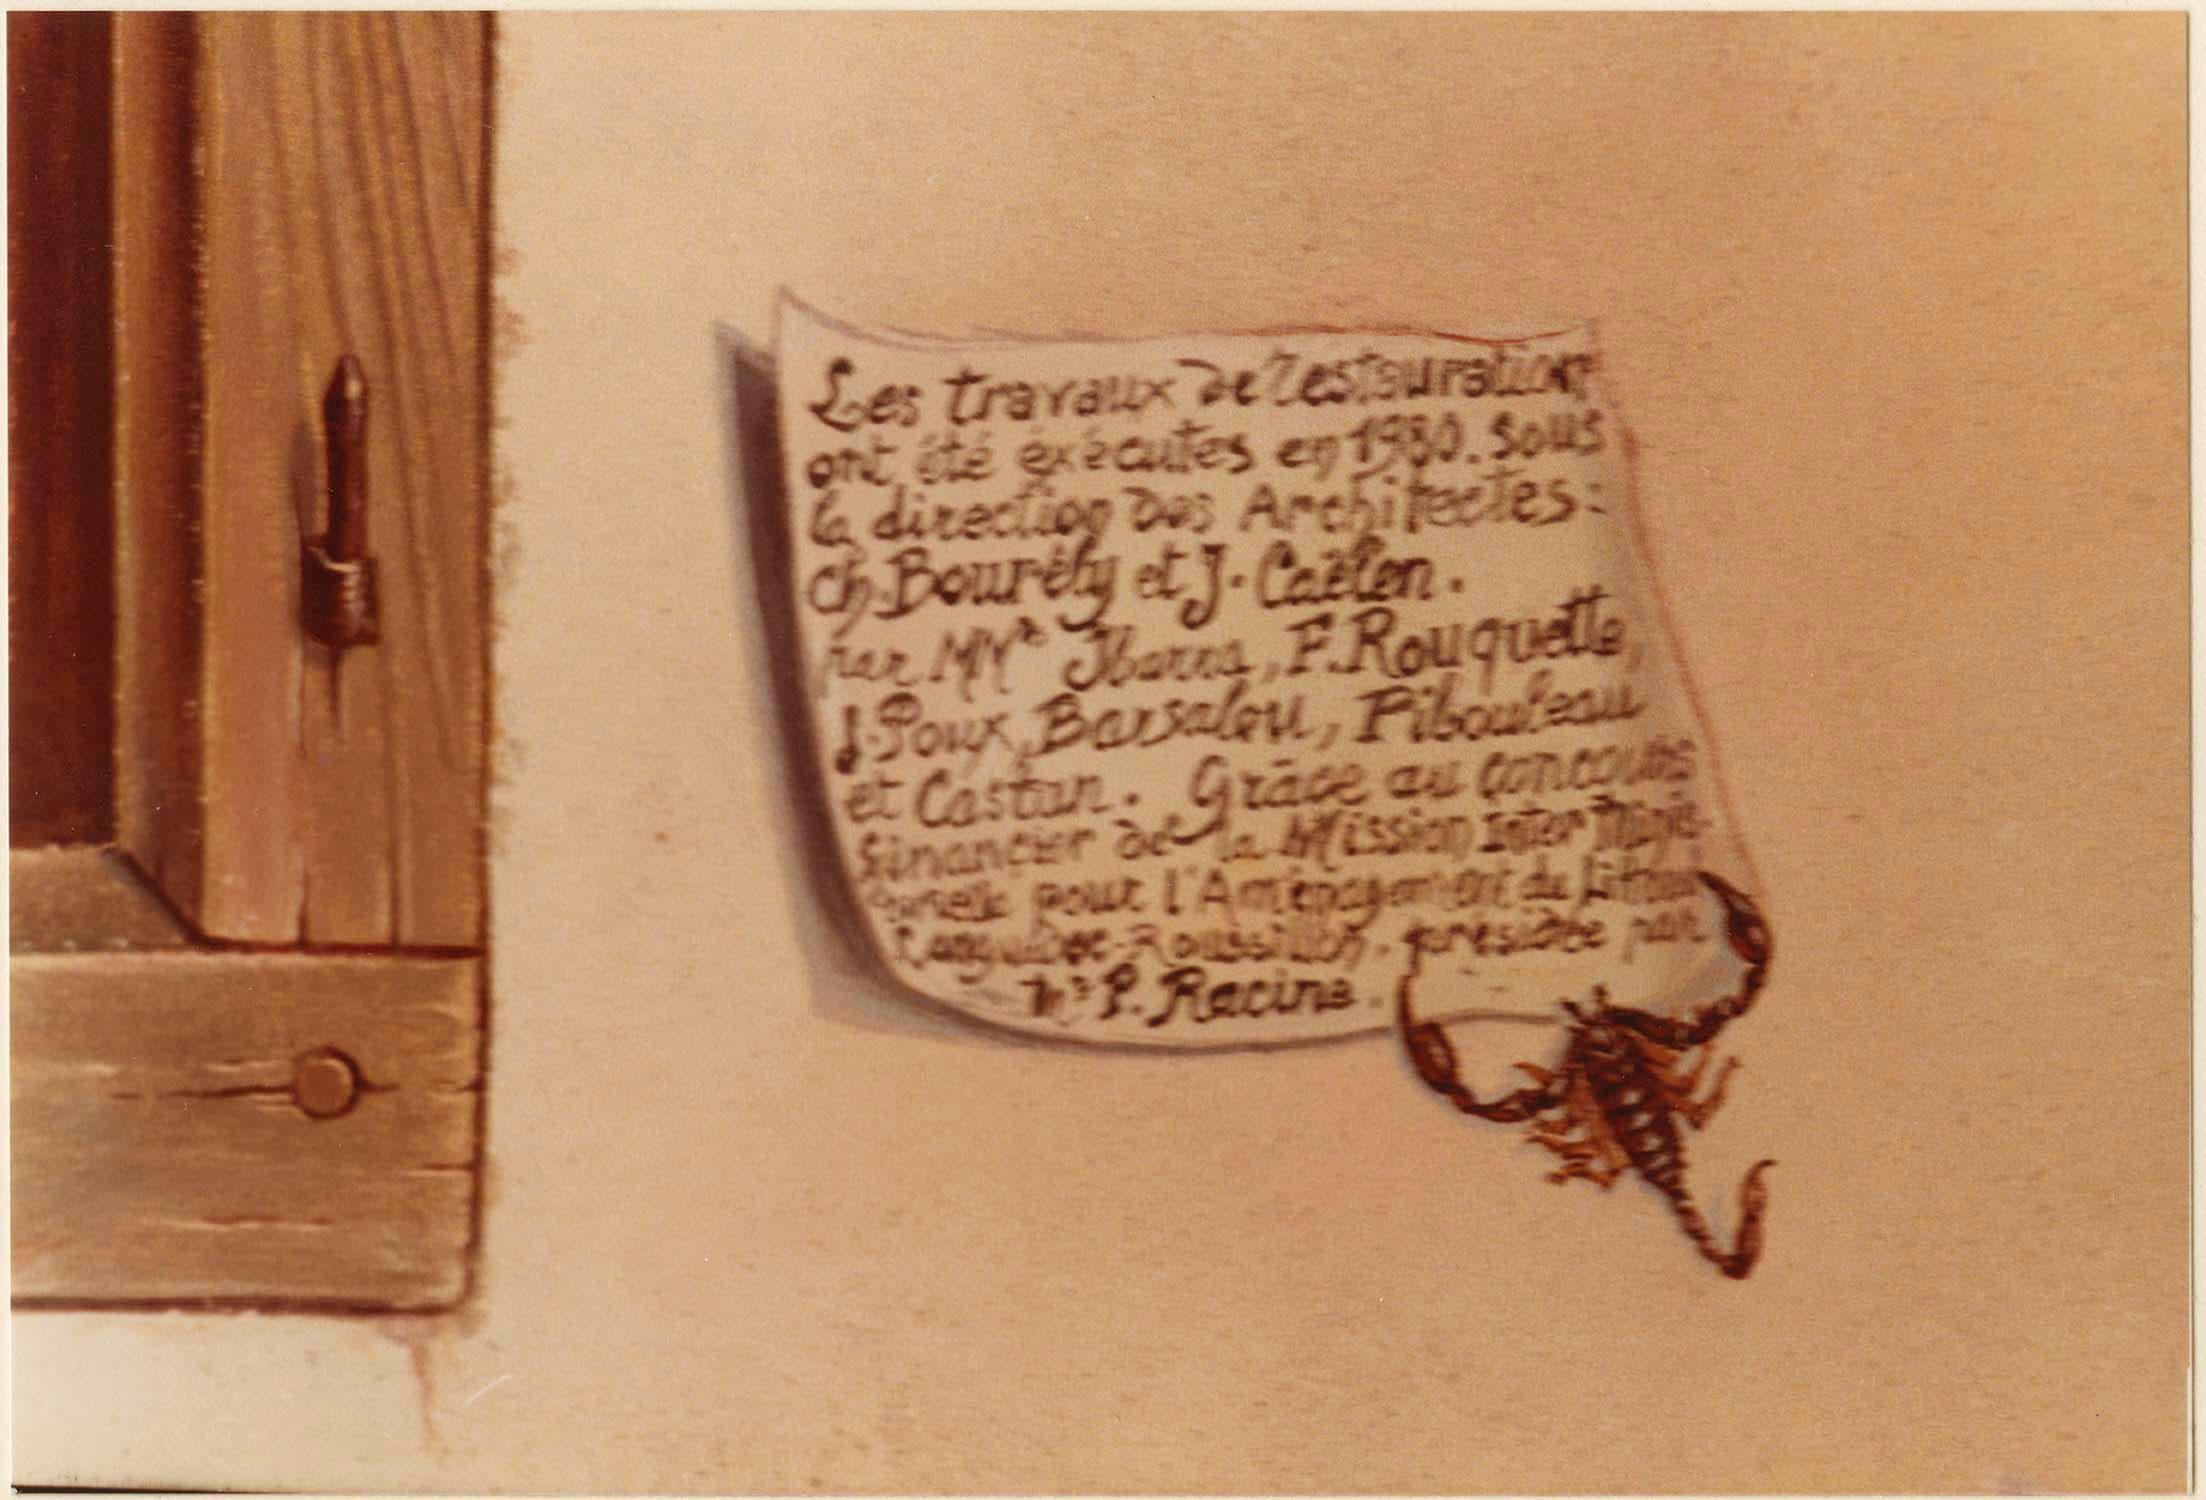 Les travaux de restauration
ont été éxécutés en 1980. sous
la direction des Architectes:
Ch. Bourély et J. Caëlen.
par MMrs Ibarra, F. Rouquette,
J. Poux, Barsalou, Pibouleau
et Castan. Grâce au concours
financier de la Mission Inter Minis-
pour l'Aménagement du Littoral
Languedoc-Roussillon. présidée par
Mr P. Racine.